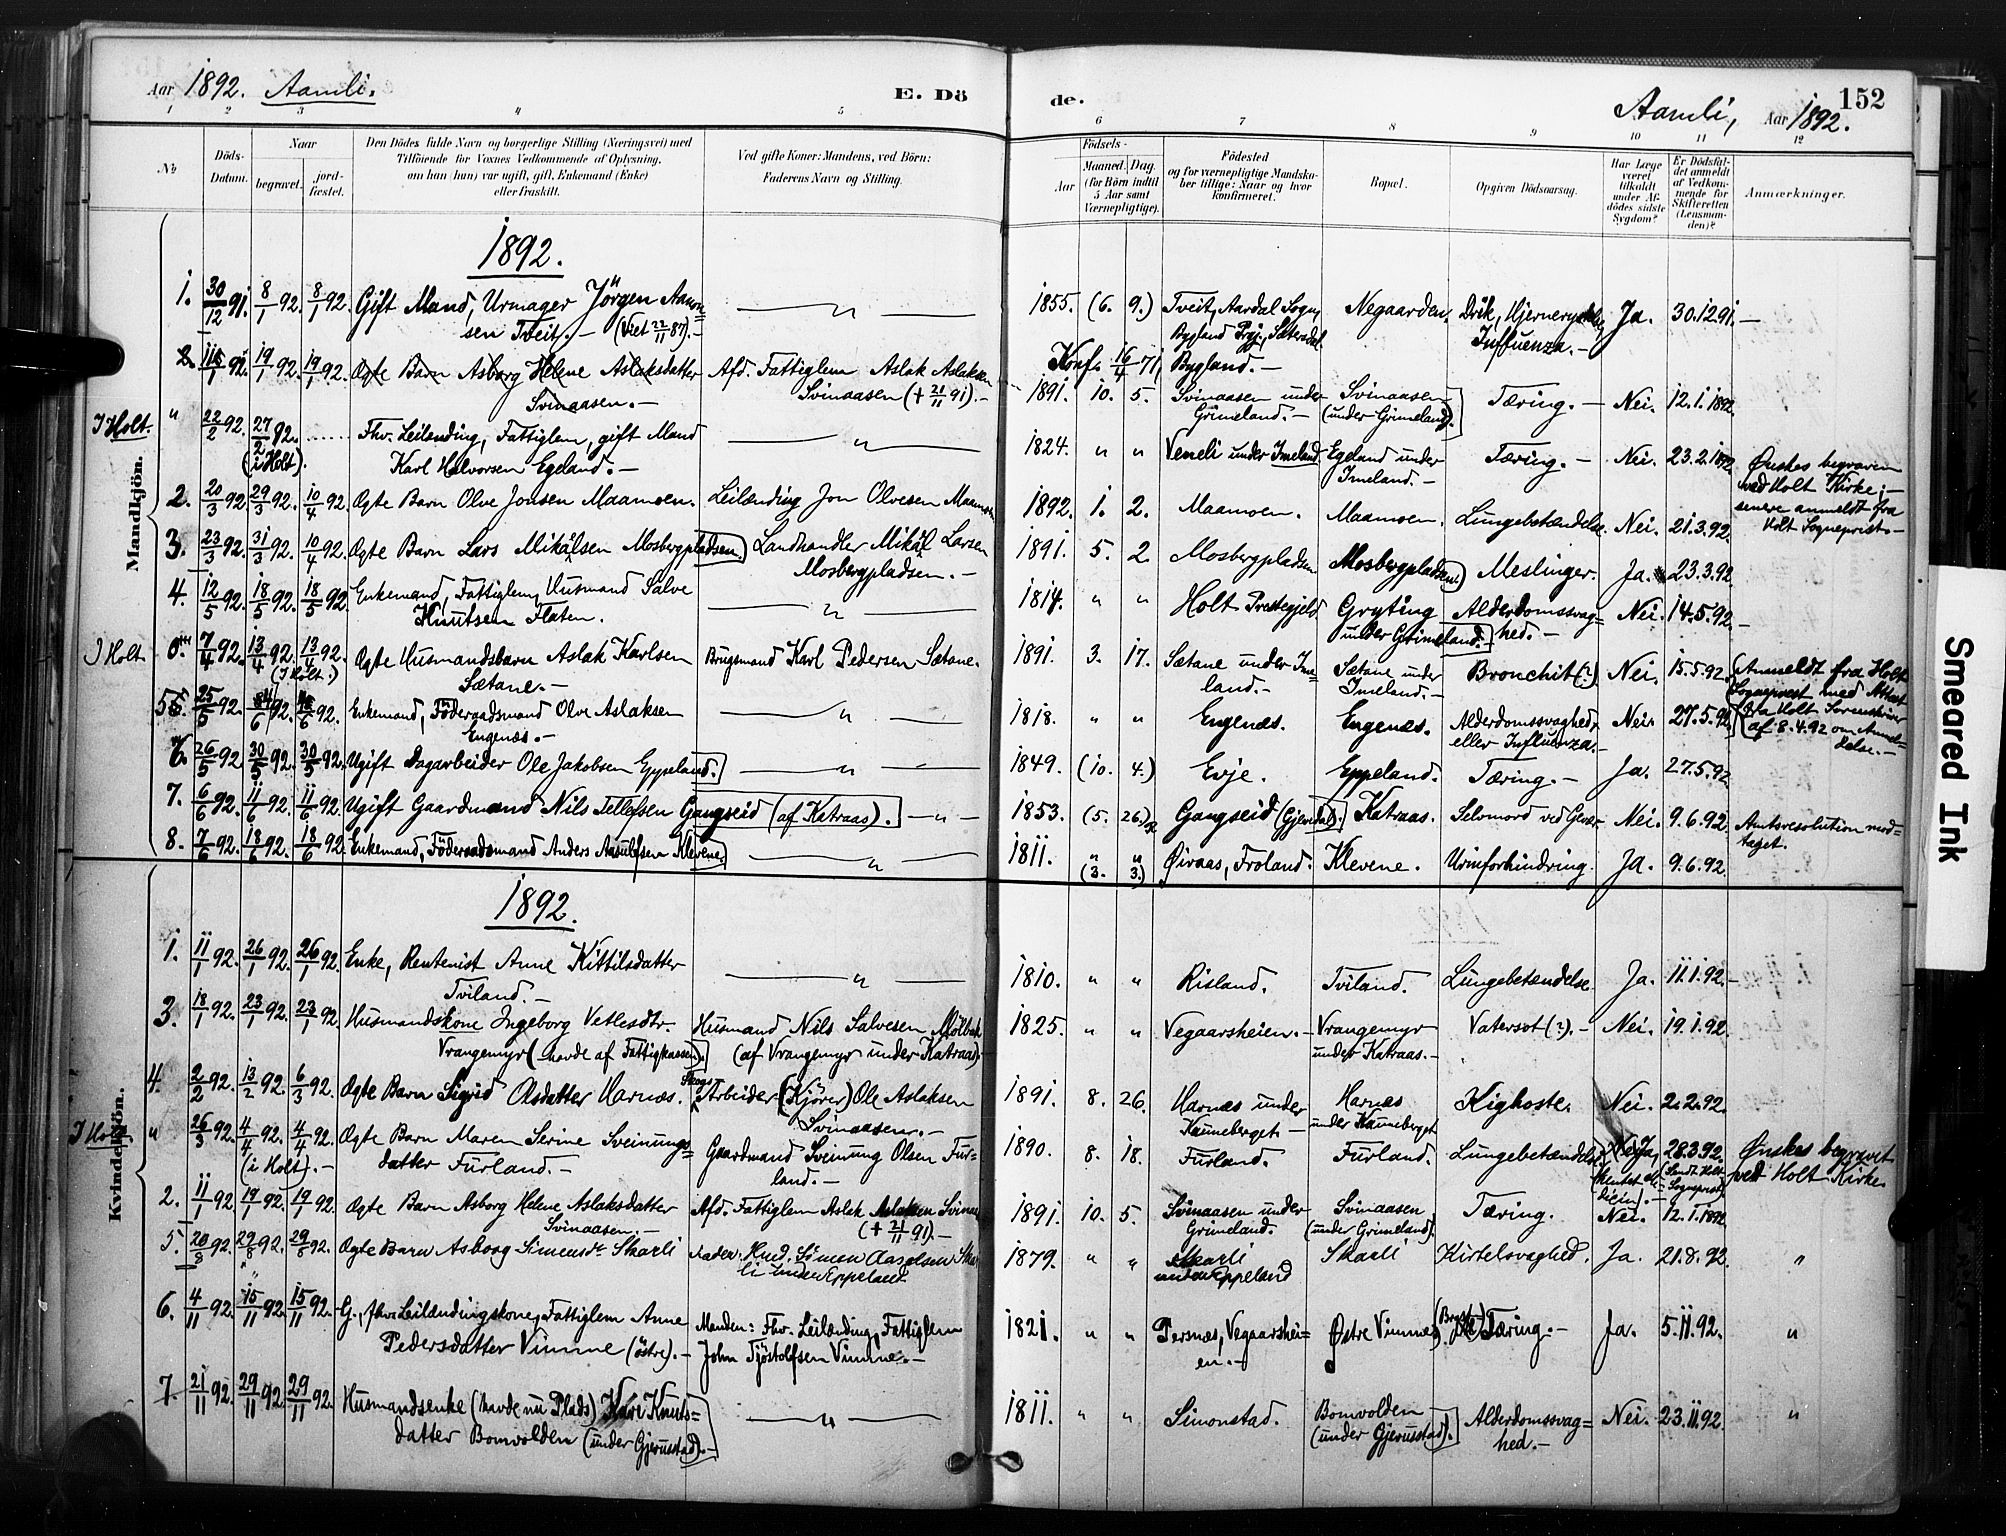 Aar 1892. Aamli.
E. Dö
de.
Aamli, Aar 1892.
152
1 2 3 4 5 6 7 8 9 10 11 12
No
Döds-
Datum.
Naar
begravet.
jord-
fæstet.
Den Dödes fulde Navn og borgerlige Stilling (Næringsvei) med
Tilföiende for Voxnes Vedkommende af Oplysning,
om han (hun) var ugift, gift, Enkemand (Enke)
eller fraskilt.
Ved gifte Koner: Mandens, ved Börn:
Faderens Navn og Stilling.
Födsels-
Aar
Maaned. Dag.
(for Börn indtil
5 Aar samt
Værnepligtige).
Födested
og for værnepligtige Mandska-
ber tillige: Naar og hvor
konfirmeret.
Bopæl.
Opgiven Dödsaarsag.
Har Læge
været
tilkaldt
under Af-
dödes sidste
Sygdom?
Er Dödsfal-
det anmeldt
af Vedkom-
mende for
Skifteretten
(Lensman-
den)?
Anmærkninger.
Mandkjön.
1892.
1. 30/12 91. 8/1 92. 8/1 92. Gift Mand, Urmager Jörgen Aanon=
sen Tveit. — (Viet 22/11 87). —
— " —
1855. (6. 9.) Tveit, Aardal Sogn,
Bygland Prgj., Sætersdal.
Konf. 16/4 71, Bygland. —
Negaarden. Drik,
Influenza. —
Ja. 30.12.91. —
2. 11/1 92. 19/1 92. 19/1 92. Ægte Barn Asborg Helene Aslaksdatter
Svinaasen. —
Afd. Fattiglem Aslak Aslaksen
Svinaasen (+ 21/11 91). —
1891. 10. 5. Svinaasen under
Grimeland. —
Svinaasen
(under Grimeland).
Tæring. — Nei. 12.1.1892
I Holt. " 22/2 92. 27/2 92. (i Holt). ...... Fhv. Leilending, Fattiglem, gift Mand
Karl Halvorsen Egeland. —
— " —
1824. " " Veneli under Imeland Egeland under
Imeland. —
Tæring. — Nei. 23.2.1892
Ønskes begraven
ved Holt Kirke; —
senere anmeldt fra
Holt Sogneprest —
2. 20/3 92 29/3 92. 10/4 92. Ægte Barn Olve Jonsen Maamoen. Leilænding Jon Olvesen Maamoen
1892. 1. 2. Maamoen. Maamoen. Lungebetændelse. Nei. 21.3.92.
3. 23/3 92. 31/3 92. 10/4 92. Ægte Barn Lars Mikälsen Mosbergpladsen. Landhandler Mikäl Larsen
Mosbergpladsen. —
1891. 5. 2 Mosbergpladsen Mosbergpladsen Meslinger. Ja. 23.3.92
4. 12/5 92. 18/5 92. 18/5 92 Enkemand, Fattiglem, Husmand Salve
Knutsen Flaten.
— " —
1814. " " Holt Prestegjeld. Gryting
under Grimeland.
Alderdomssvag=
hed. —
Nei. 14.5.92. —
I Holt 7/4 92. 13/4 92. 13/4 92. (I Holt.) Ægte Husmandsbarn Aslak Karlsen
Sætane. —
Brugsmand Karl Pedersen Sætane.
1891. 3. 17. Sætane under Ime=
land. —
Sætane under
Imeland. —
Bronchit (?) Nei. 15.5.92.
(Anmeldt fra Holt
Sogneprest med Attest
fra Holt Sorenskriver
af 8.4.92 om Anmel-
delse. —
5. 25/5 92. 92. 92. Enkemand, Föderaadsmand Olve Aslaksen
Engenæs. —
— " —
1818. " " Engenæs. Engenæs. Alderdomssvaghed
eller Influenza. —
Nei. 27.5.92.
6. 26/5 92 30/5 92. 30/5 92. Ugift Dagarbeider Ole Jakobsen Eppeland.
— " —
1849. (10. 4.) Evje. Eppeland. Tæring. — Ja. 27.5.92
7. 6/6 92. 11/6 92. 11/6 92. Ugift Gaardmand Nils Tellefsen Gangseid (af Katraas). — " —
1853. (5. 26.) Gangseid (Gjevedal). Katraas. Selvmord ved Nei. 9.6.92. Amtsresolution mod=
taget.
8. 7/6 92. 18/6 92. 18/6 92. Enkemand, Föderaadsmand Anders Aasulfsen Klevene.
— " —
1811. " " (3. 3.) Øiraas, Froland. Klevene. Urinforhindring. Ja. 9.6.92.
Kvindekjön.
1892.
1. 11/1 92. 26/1 92. 26/1 92. Enke, Rentenist Anne Kittilsdatter
Tviland. —
— " —
1810. " " Risland. Tviland. Lungebetændelse. Ja. 11.1.92. —
3. 18/1 92. 23/1 92. 23/1 92. Husmandskone Ingeborg Vetlesdtr.
Vrangemyr (havde af Fattigkassen).
Husmand Nils Salvesen Mölbak
(af Vrangemyr under Katraas)
1825. " " Vegaarsheien. — Vrangemyr
under Katraas. —
Vatersot (?). — Nei. 19.1.92.
4. 2/2 92. 13/2 92. 6/3 92. Ægte Barn Sigrid Olsdatter Harnæs. Skogs-
Arbeider (Kjörer) Ole Aslaksen
Svinaasen. —
1891. 8. 26. Harnæs under
Kauneberget. —
Harnæs
under Kauneberget
Kighoste. Nei. 2.2.92.
I Holt. " 26/3 92. 4/4 92. 4/4 92. (i Holt). — Ægte Barn Maren Serine Sveinungs=
datter Furland. —
Gaardmand Sveinung Olsen Fur=
land. —
1890. 8. 18. Furland. Furland. Lungebetændelse Ja, 28.3.92.
(Sendt Holt
Sogneprest)
Ønskes begravet
ved Holt Kirke
2. 11/1 92. 19/1 92. 19/1 92. Ægte Barn Asborg Helene Aslaksdatter
Svinaasen. —
Afd. Fattiglem Aslak Aslaksen Svinaa
(+ 21/11 91). —
1891. 10. 5. Svinaasen under
Grimeland.
Svinaasen
(under Grimeland).
Tæring. Nei. 12.1.1892
5. 20/8 92. 29/8 92. 29/8 92. Ægte Barn Asborg Simensdr Skarli
Fader: Husm. Simen Aasulsen Skar
li under Eppeland.
1879. " " Skarli
under Eppeland
Skarli Kirtelsvaghed. Ja. 21.8.92. "
6. 4/11 92. 15/11 92. 15/11 92. G., fhv. Leilændingskone, Fattiglem Anne
Pedersdatter Vimme (östre). —
Manden: Fhv. Leilænding, Fattiglem
John Tjöstolfsen Vimme. —
1821. " " Persnæs, Vegaarshei=
en. —
Østre Vimme, (Bryst) Tæring. — Ja. 5.11.92. "
7. 21/11 92. 29/11 92 29/11 92. Husmandsenke (havde nu Plads) Kari Knuts=
datter Bomvolden (under Gjerusstad). —
— " —
1811. " " Simonstad. Bomvolden
(under Gjerusstad).
Alderdomssvag=
hed. —
Nei. 23.11.92. "
Smeared Ink